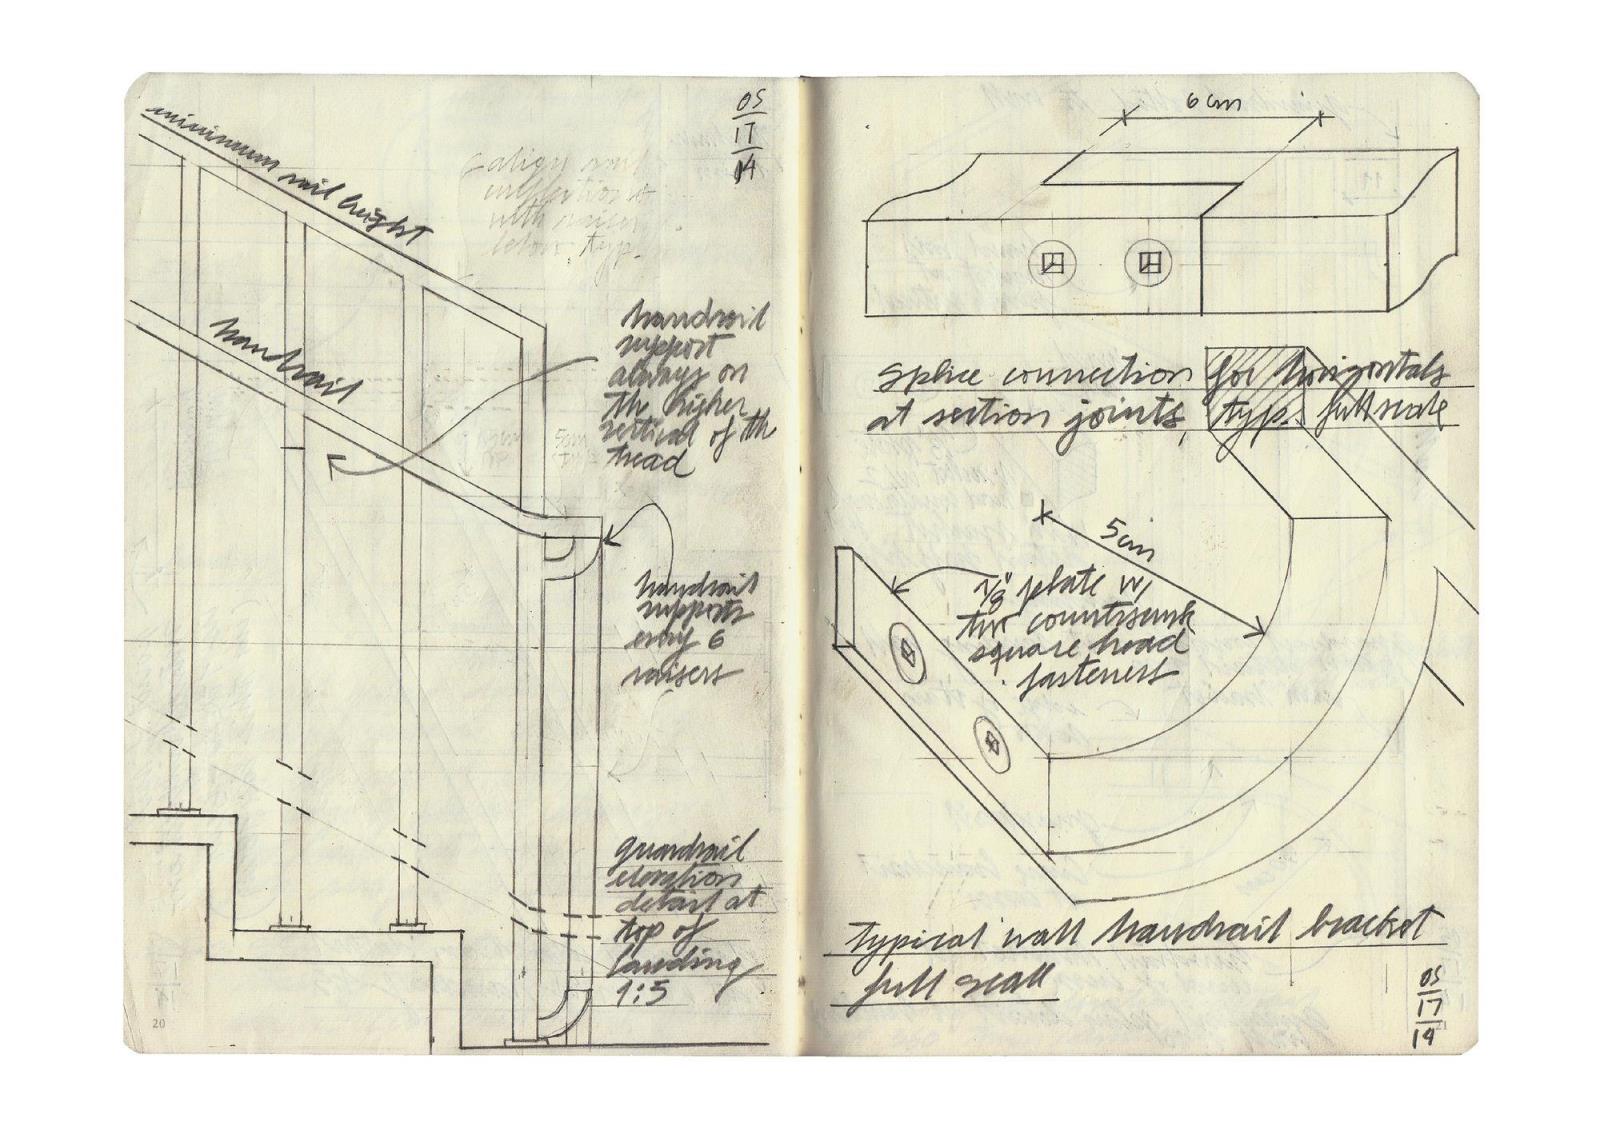 05
17
14
minimum rail height
align rail
inflections
with riser
below, typ.
handrail
handrail
support
always on
the higher
vertical of the
tread
5cm
handrail
supports
every 6
risers
guardrail
elevation
detail at
top of
landing
1:5
20
6 cm
splice connection for horizontals
at section joints, typ. full scale
5cm
1/8" plate w/
two countersunk
square head
fasteners
typical wall handrail bracket
full scale
05
17
14